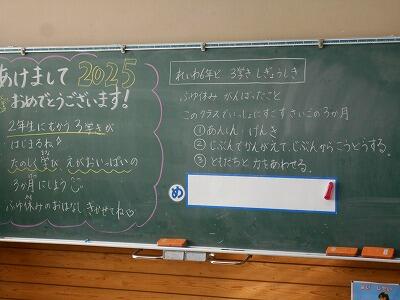 あけまして 2025
おめでとうございます!
2年生にむかう 3学きが
はじまるね♪
たのしく学び、えがおいっぱいの
3か月にしよう
ふゆ休みのおはなし きかせてね♡
れいわ6年ど 3学き しぎょうしき
ふゆ休み がんばったこと
このクラスでいっしょにすごす さいごの3か月
① あんぜん げんき
② じぶんでかんがえて、じぶんからこうどうする。
③ ともだちと 力をあわせる。
め